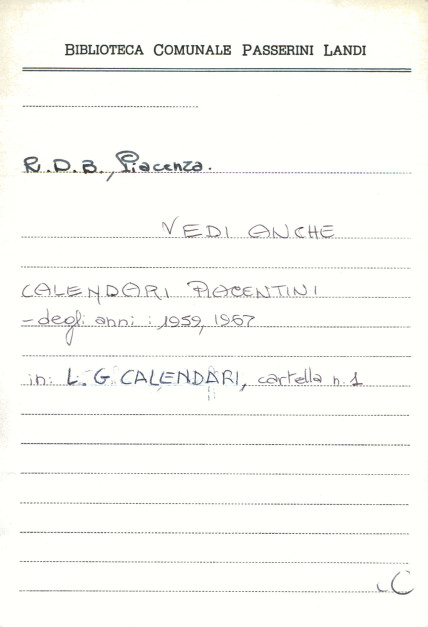 BIBLIOTECA COMUNALE PASSERINI LANDI
R.D.B., Piacenza.
VEDI ANCHE
CALENDARI PIACENTINI
- degli anni: 1959, 1967
in: L.G. CALENDARI, cartella n. 1